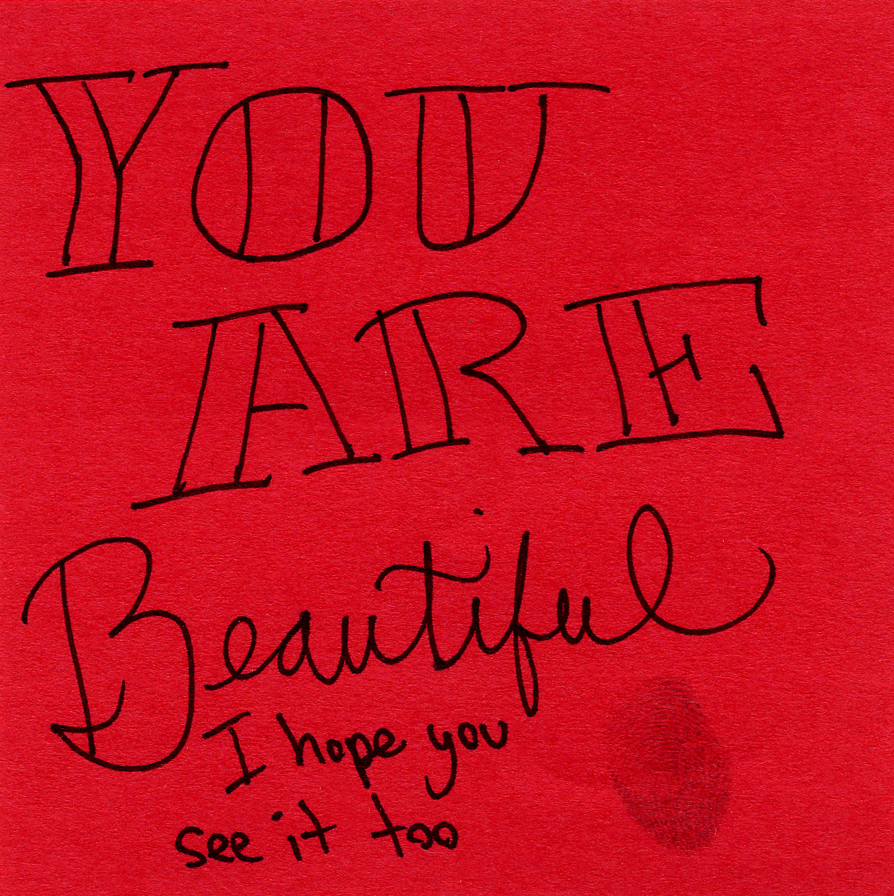 YOU
ARE
Beautiful
I hope you
see it too